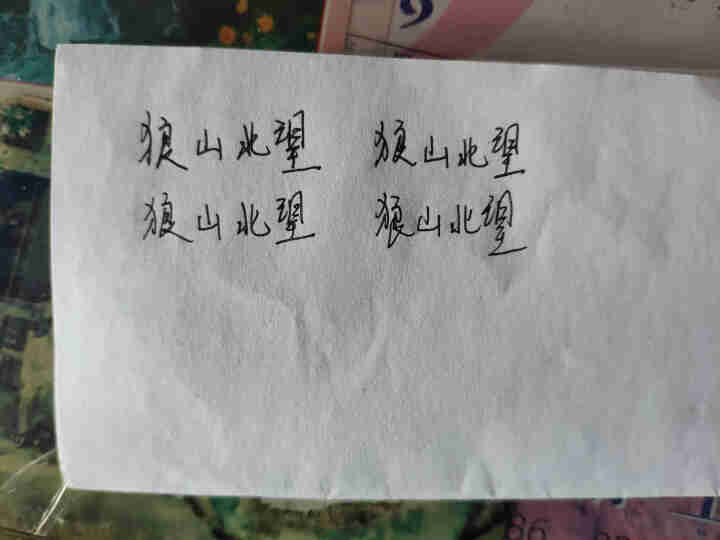 6
狼山北望 狼山北望
狼山北望 狼山北望
86